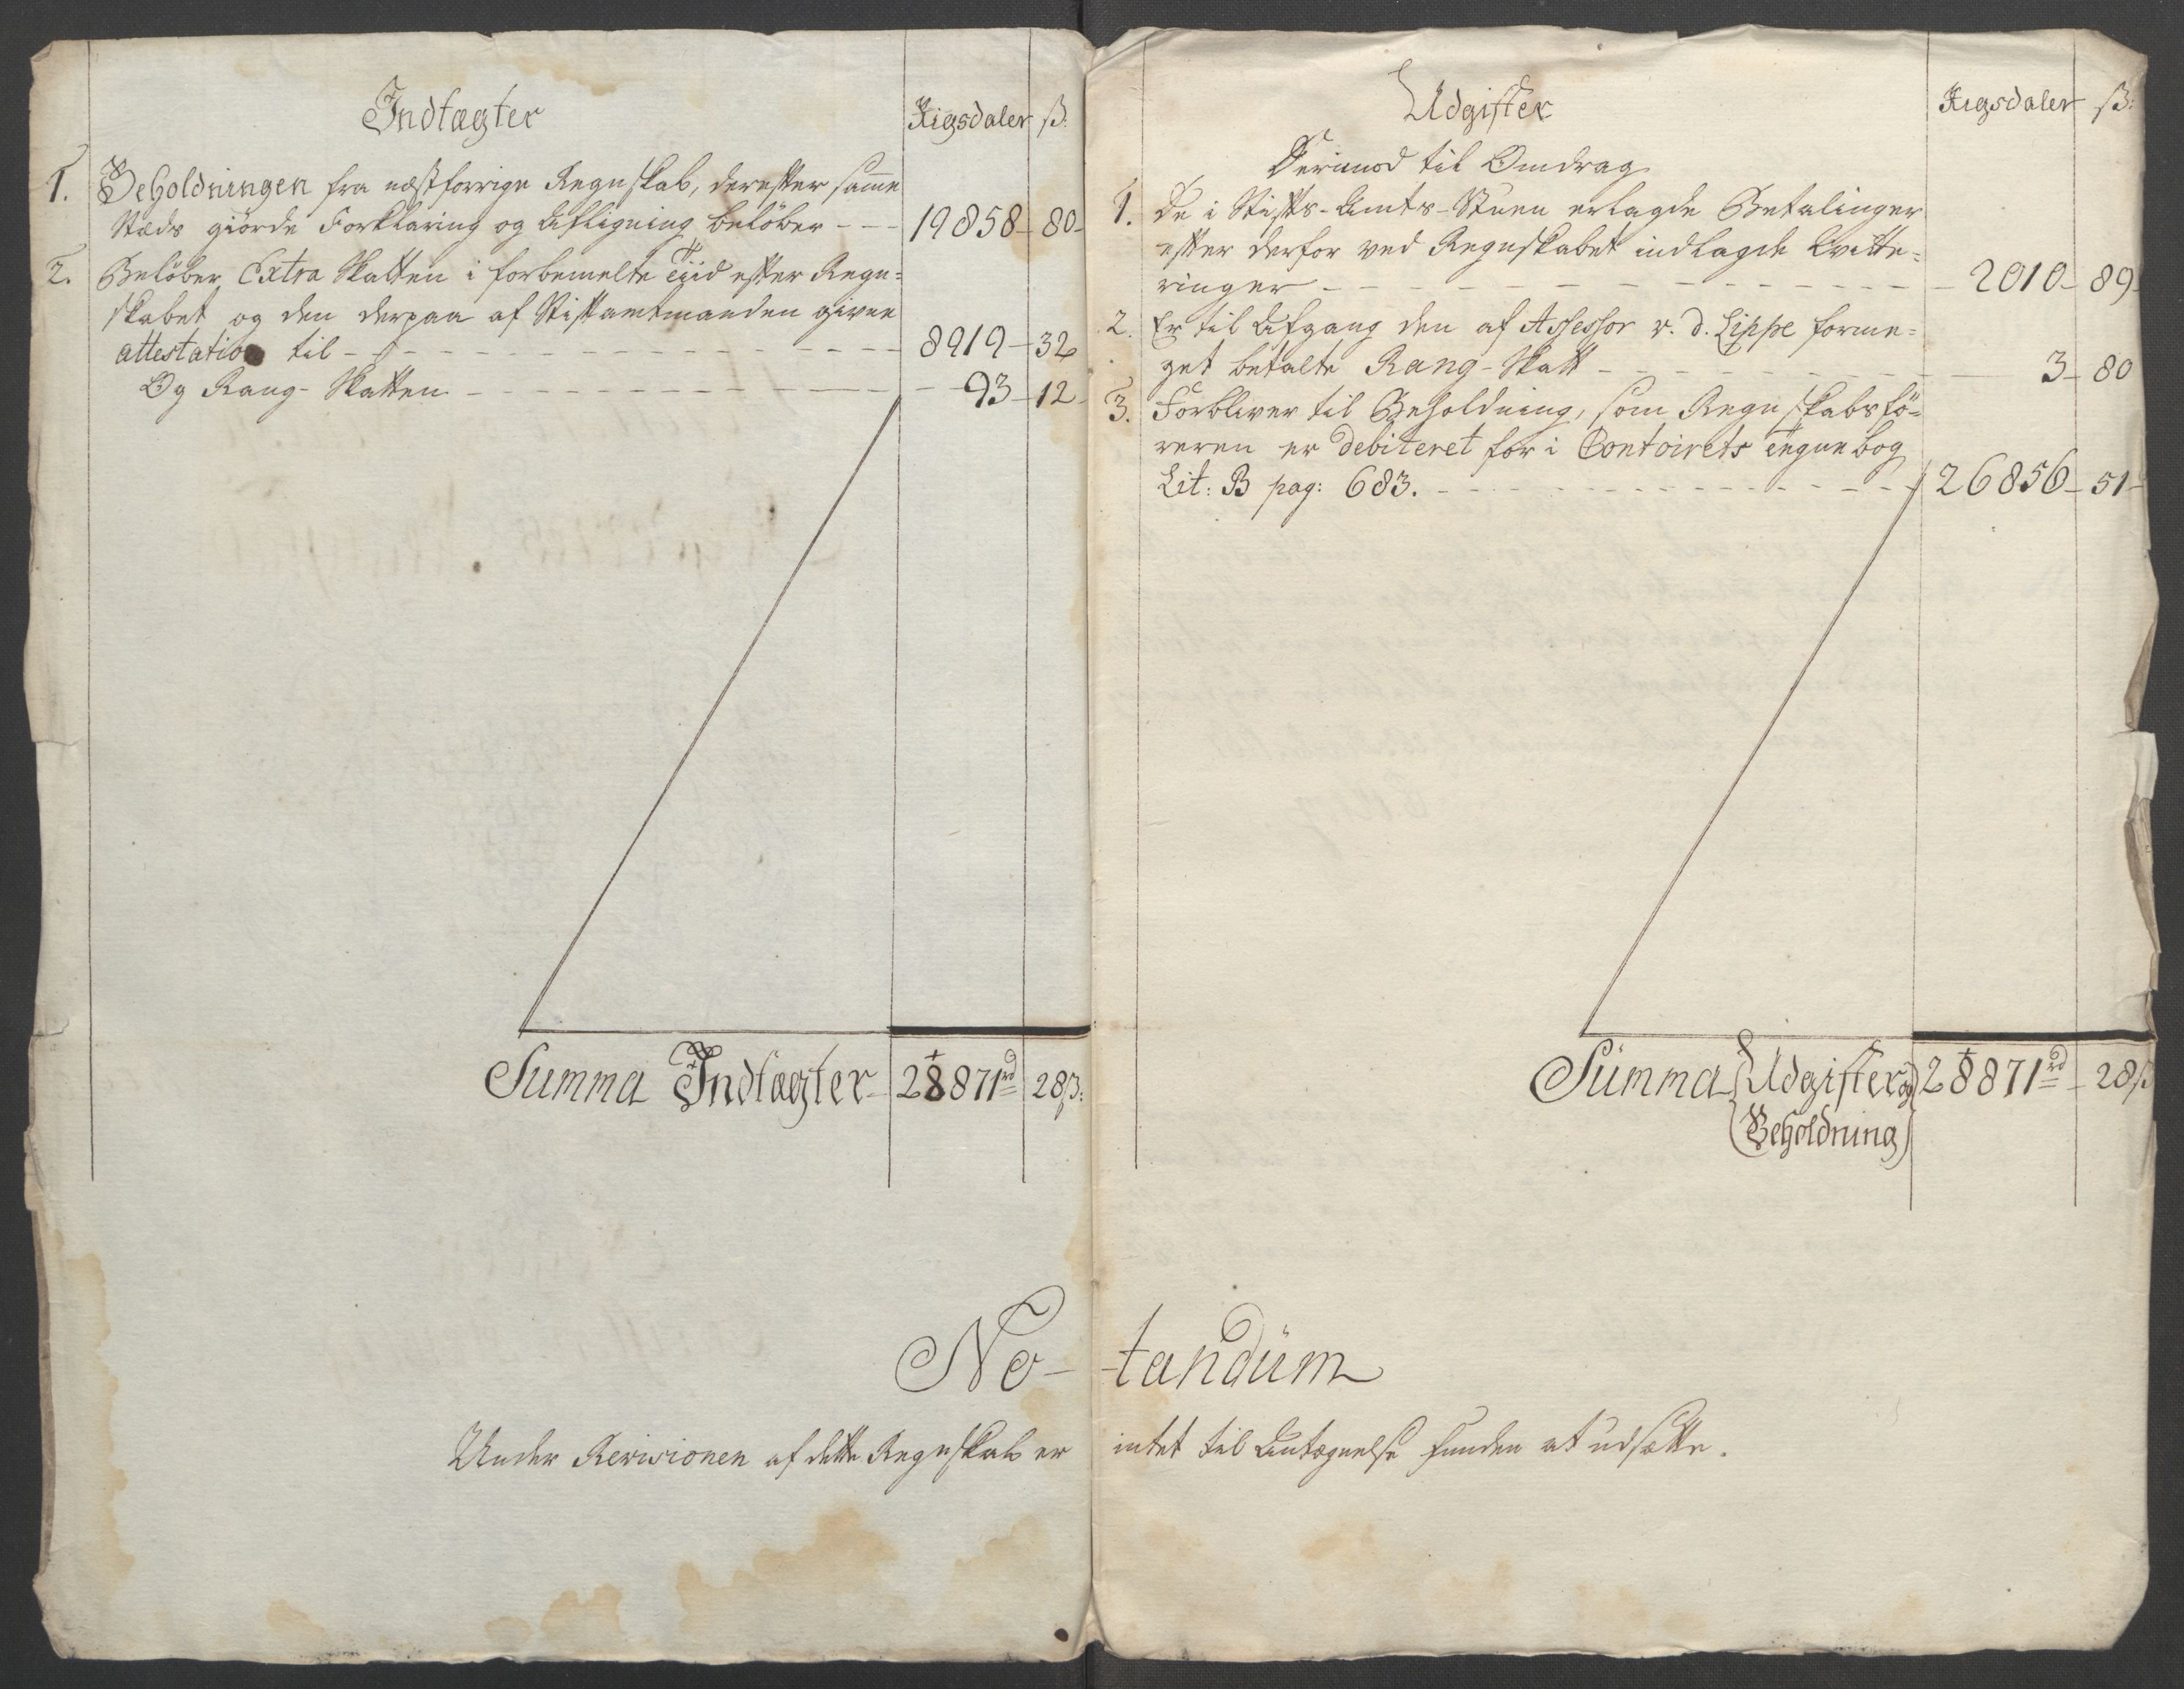 Indtægter
Rigsdaler ß:
1. Beholdningen fra næstforrige Regnskab, derefter samme
Stæds giorde Forklaring og Afligning beløber - - - 19858 - 80 -
2. Beløber Extra Skatten i forbemelte Tiid efter Regn=
skabet og den derpaa af Stiftamtmanden given
attestation til - - - 8919 - 32
Og Rang-Skatten - - - 93 - 12 -
Summa Indtægter - 28871 rd 28 ß:
Udgifter
Rigsdaler ß:
Derimod til Omdrag
1. De i Stifts-Amts-Stuen erlagde Betalinger
efter derfor ved Regnskabet indlagde Qvitte=
ringer - - - 2010 - 89 -
2. Er til Afgang den af Assessor v. d. Lippe forme=
get betalte Rang-Skatt - - - 3 - 80
3. Forbliver til Beholdning, som Regnskabsfö=
reren er debiteret for i Contoirets Regnebog
Lit: B pag: 683. - - - 26856 - 51 -
Summa Udgifter og 28871 rd - 28 ß
Beholdning
No- -tandüm
Under Revisionen af dette Regnskab er intet til Antægnelse funden at udsætte.